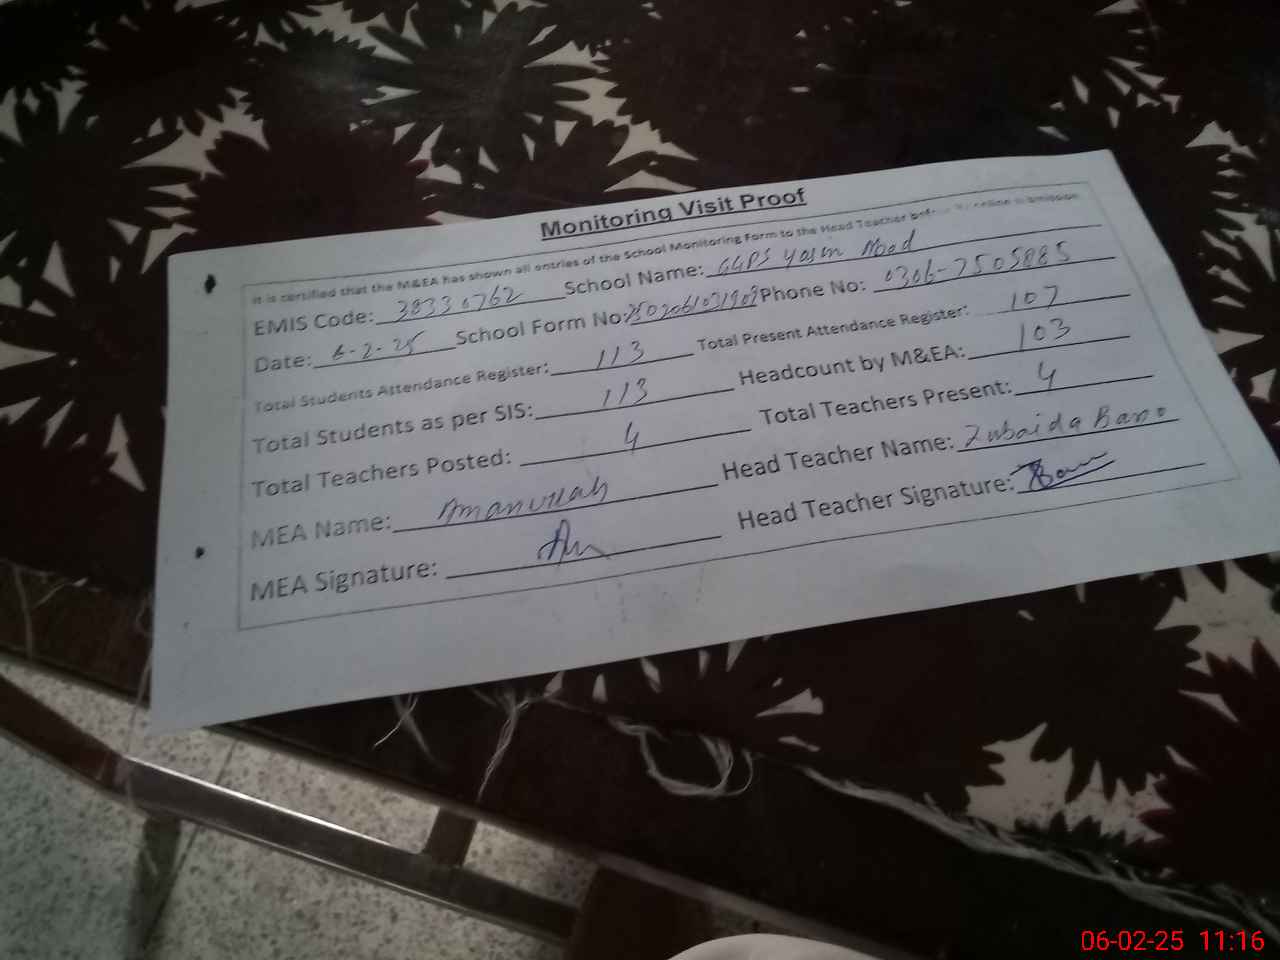 Monitoring Visit Proof
It is certified that the M&EA has shown all entries of the School Monitoring Form to the Head Teacher before online submission
EMIS Code: 38330762 School Name: GGPS Yasin Abad
Date: 6-2-25 School Form No: Phone No: 0306-7505885
Total Students Attendance Register: 113 Total Present Attendance Register: 107
Total Students as per SIS: 113 Headcount by M&EA: 103
Total Teachers Posted: 4 Total Teachers Present: 4
MEA Name: Amanullah Head Teacher Name: Zubaida Bano
MEA Signature: Head Teacher Signature:
06-02-25 11:16